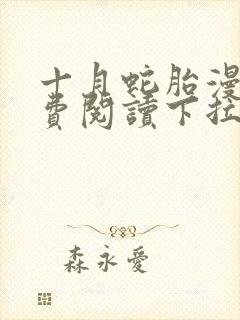 十月蛇胎漫
費閱讀下拉
森永愛